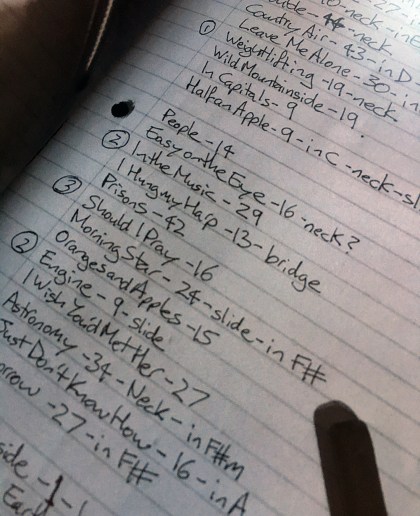 10-neck-in
Country Air-43-in D
Leave Me Alone-30-i
① Weightlifting-19-neck
Wild Mountainside-19.
In Capitals-9
Half an Apple-9-in C-neck-sl
People-14
Easy on the Eye-16-neck?
② In the Music-29
I Hung my Harp-13-bridge
Prisons-42
③ Should I Pray-16
Morning Star-24-slide-in F#
Oranges and Apples-15
② Engine-9-slide
I Wish You'd Met Her-27
Astronomy-34-Neck-in F#m
Just Don't Know How-16-in A
rrow-27-in F#
side-1-